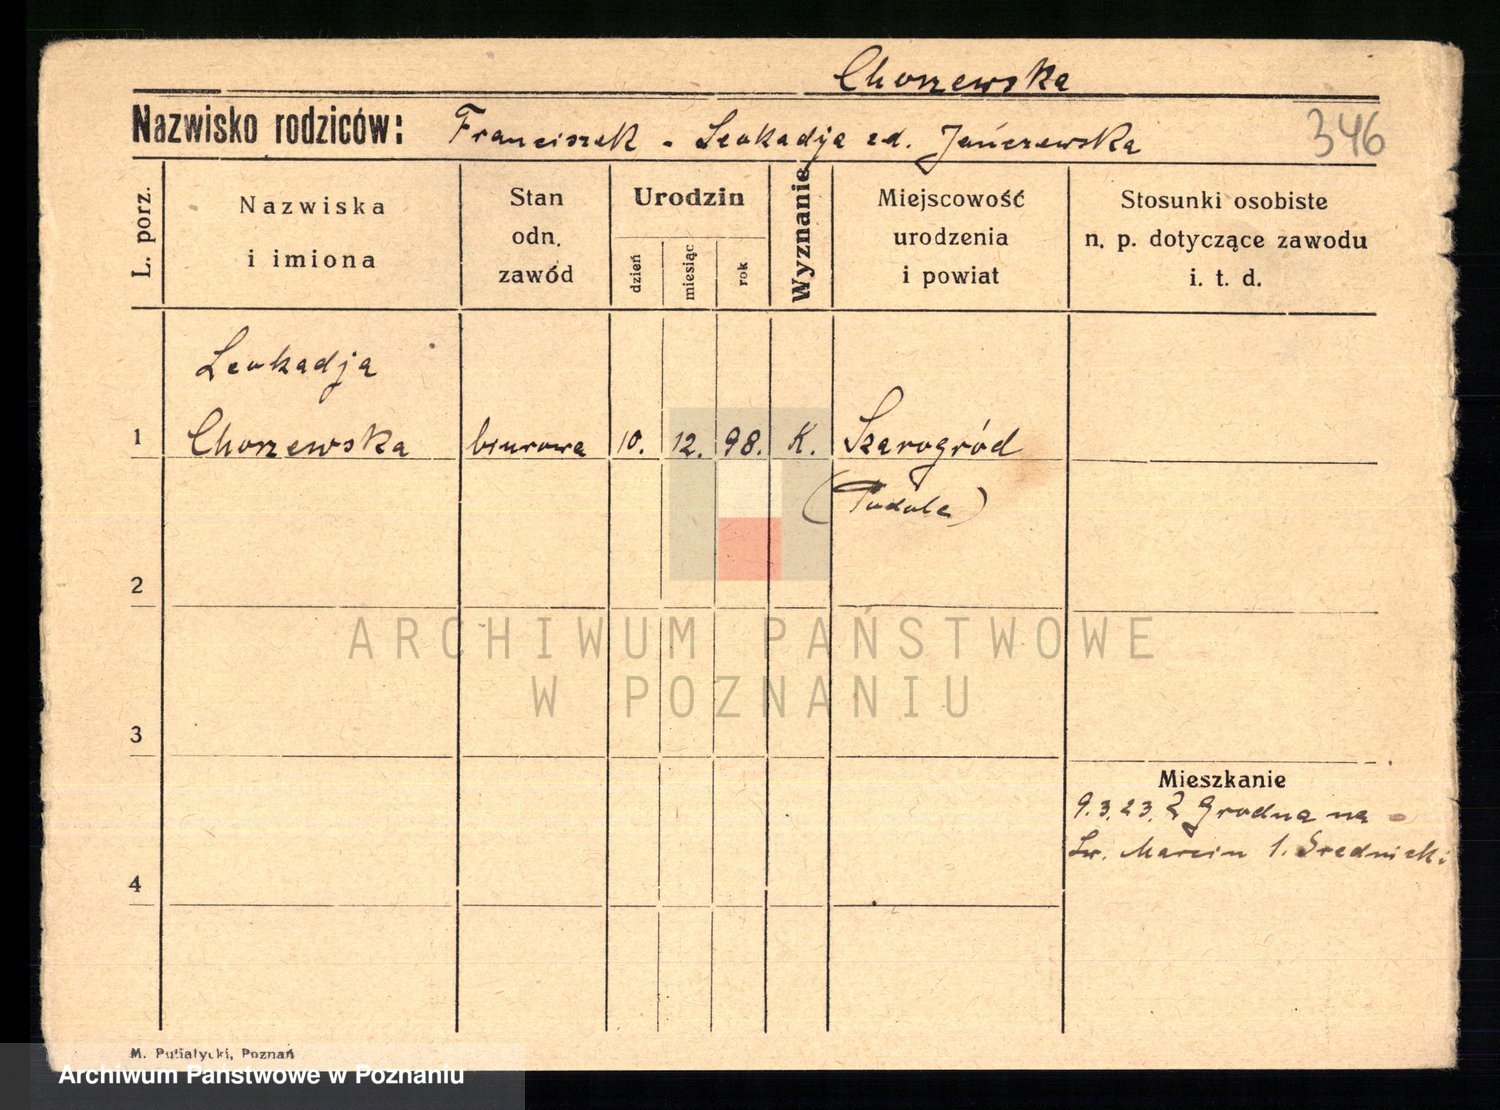 Choszewska
Nazwisko rodziców: Franciszek - Leokadja zd. Jańczewska
346
L. porz.
Nazwiska
i imiona
Stan
odn.
zawód
Urodzin
dzień
miesiąc
rok
Wyznanie
Miejscowość
urodzenia
i powiat
Stosunki osobiste
n. p. dotyczące zawodu
i. t. d.
Leokadja
1 Choszewska biurowa 10. 12. 98. K. Szarogród
(Podole)
2
ARCHIWUM PAŃSTWOWE
W POZNANIU
3
Mieszkanie
9.3.23. Z Grodna na
Św. Marcin 1. Średnicki
4
M. Putiatycki, Poznań
Archiwum Państwowe w Poznaniu